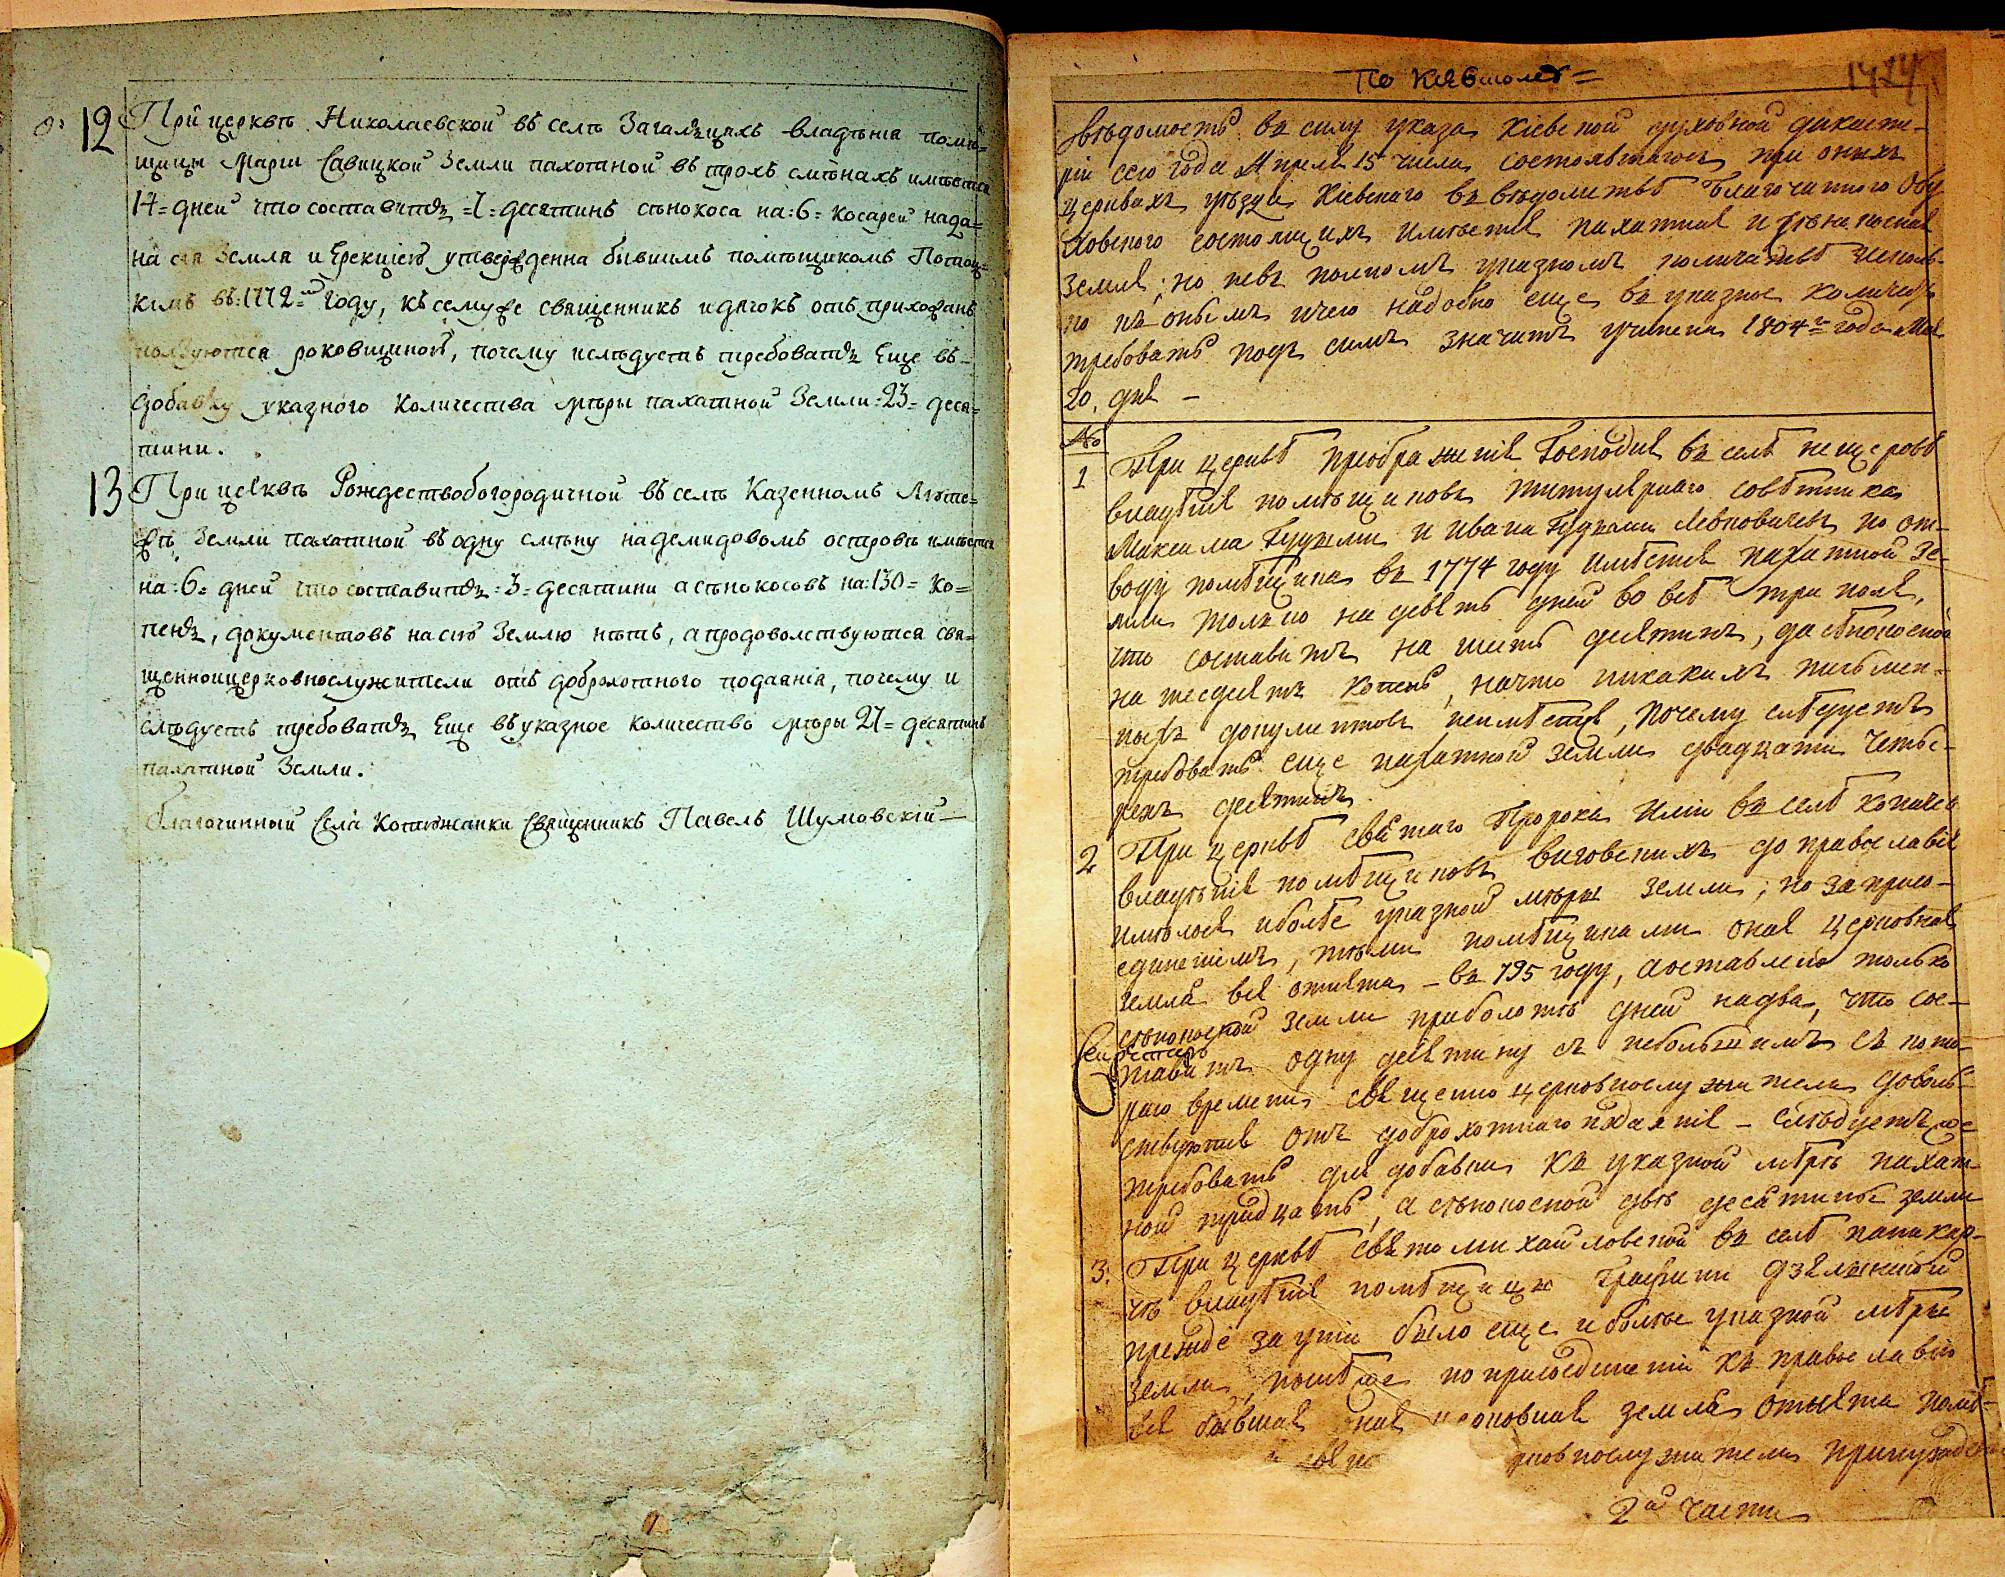 12 При церквѣ Николаевской въ селѣ Загальцахъ владѣнія помѣ=
щицы Маріи Савицкой Земли пахотной въ трохъ смѣнахъ имѣется
14= дней что составитъ =7= десятинъ сѣнокоса на: 6= косарей нада=
на сія Земля и Ерекціею утвержденна бывшимъ помѣщикомъ Потоц=
кимъ въ: 1772=мъ Году, къ сему же священникъ и дячокъ отъ прихожанъ
ползуются роковщиною, почему ислѣдуетъ требовать Еще въ=
добавку указного Количества мѣры пахатной Земли =23= деся=
тини.
13 При церквѣ Рождествобогородичной въ селѣ Казенномъ Люте=
жѣ Земли пахатной въ одну смѣну на демидовомъ островѣ имѣется
на: 6= дней что составитъ =3= десятини а сѣнокосовъ на: 130= ко=
пенъ, документовъ на сію Землю нѣтъ, а продоволствуются свя=
щенноицерковнослужители отъ доброхотного подаянія, почему и
слѣдуетъ требовать Еще въ указное количество мѣры 27= десятинъ
пахатной Земли.
благочинный Села Котюжанки Священникъ Павелъ Шумовскій
1424
Вѣдомость въ силу указа Кіевской духовной дикасте-
ріи сего года Апреля 15 числа состоявшагось при оныхъ
церквахъ уѣзда Кіевскаго въ вѣдомствѣ благочинного Обу
ховского состоящихъ имѣется пахатная и сѣнокосная
земля; но не въ полномъ указномъ количествѣ и сколь-
ко къ онымъ и чего надобно еще въ указное Количество
требовать подъ симъ значитъ учинена 1804г года Мая
20. дня –
№
1 При церквѣ преображенія Господня въ селѣ пещеровѣ
владѣнія помѣщиковъ титулярнаго совѣтника
Максима Гудимы и Ивана Гудимы Левковичевъ по от-
воду помѣщика въ 1774 году имѣется пахатной зе-
мли только на девять дней во всѣ три поля,
что составитъ на шесть десятинъ, да сѣнокосной
на шесдесятъ копенъ, на что никакихъ письмен-
ныхъ документовъ неимѣется, почему слѣдуетъ
требовать еще пахатной земли двадцати четы-
рехъ десятинъ.
2 При церквѣ святаго Пророка Иліи въ селѣ копачевѣ
владѣнія помѣщиковъ виговскихъ до православія
имѣлось и болѣе указной мѣры земли; но за присо-
единеніемъ, тѣми помѣщиками оная церковная
земля вся отнята – въ 795 году, а оставлено только
сѣнокосной земли при болотѣ дней на два, что сос-
Секретарь
тавитъ одну десятину съ небольшимъ съ кото-
раго времени священно церковнослужители доволь-
ствуются отъ доброхотнаго подаянія – Слѣдуетъ же
требовать для добавки къ указной мѣрѣ пахат-
ной тридцать, а сѣнокосной двѣ десятины земли
3. При церквѣ святомихайловской въ селѣ
владѣнія помѣщицы графини
прежде за уніи было еще и болѣе указной мѣры
земли, по присоединеніи къ православію
вся бывшая церковная земля отнята помѣ-
служители принуждены
2й части